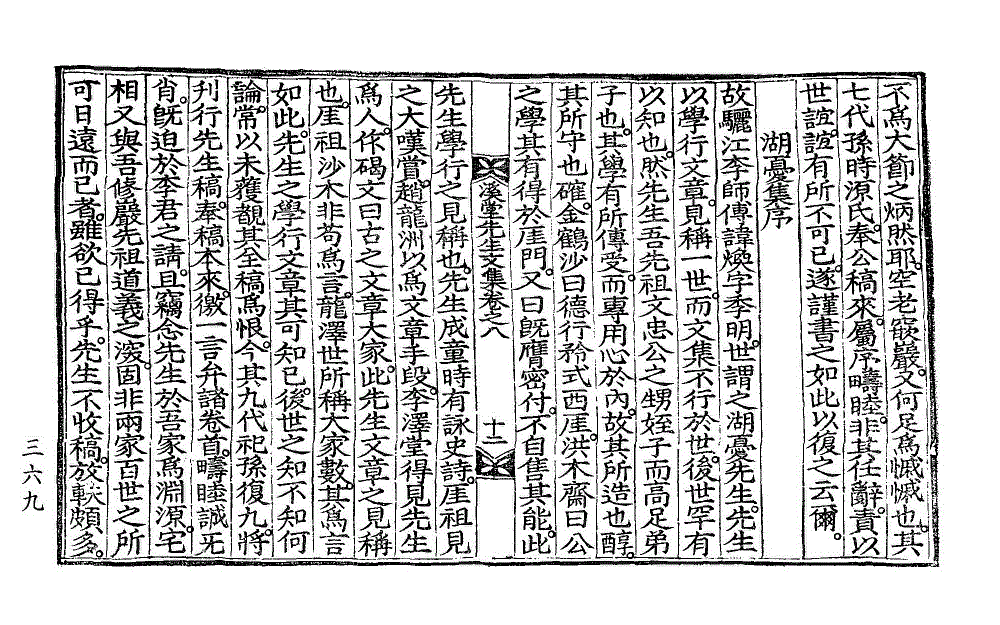 不爲大節之炳然耶。空老嵌巖。又何足爲慽慽也。其
七代孫時源氏。奉公稿來。屬序疇睦。非其任辭。責以
世誼。誼有所不可已。遂謹書之如此以復之云爾。
湖憂集序
故驪江李師傅諱煥字季明。世謂之湖憂先生。先生
以學行文章。見稱一世。而文集不行於世。後世罕有
以知也。然先生吾先祖文忠公之甥姪子而高足弟
子也。其學有所傳受。而專用心於內。故其所造也醇。
其所守也確。金鶴沙曰德行矜式西厓。洪木齋曰公
之學其有得於厓門。又曰旣膺密付。不自售其能。此
溪堂先生文集卷之八 十二
先生學行之見稱也。先生成童時有詠史詩。厓祖見
之大嘆賞。趙龍洲以爲文章手段。李澤堂得見先生
爲人作碣文曰古之文章大家。此先生文章之見稱
也。厓祖沙木非苟爲言。龍澤世所稱大家數。其爲言
如此。先生之學行文章其可知已。後世之知不知何
論。常以未獲覩其全稿爲恨。今其九代祀孫復九。將
刊行先生稿。奉稿本來。徵一言弁諸卷首。疇睦誠旡
肖。旣迫於李君之請。且竊念先生於吾家爲淵源。宅
相又與吾修巖先祖道義之深。固非兩家百世之所
可日遠而已者。雖欲已得乎。先生不收稿。放軼頗多。
三六九